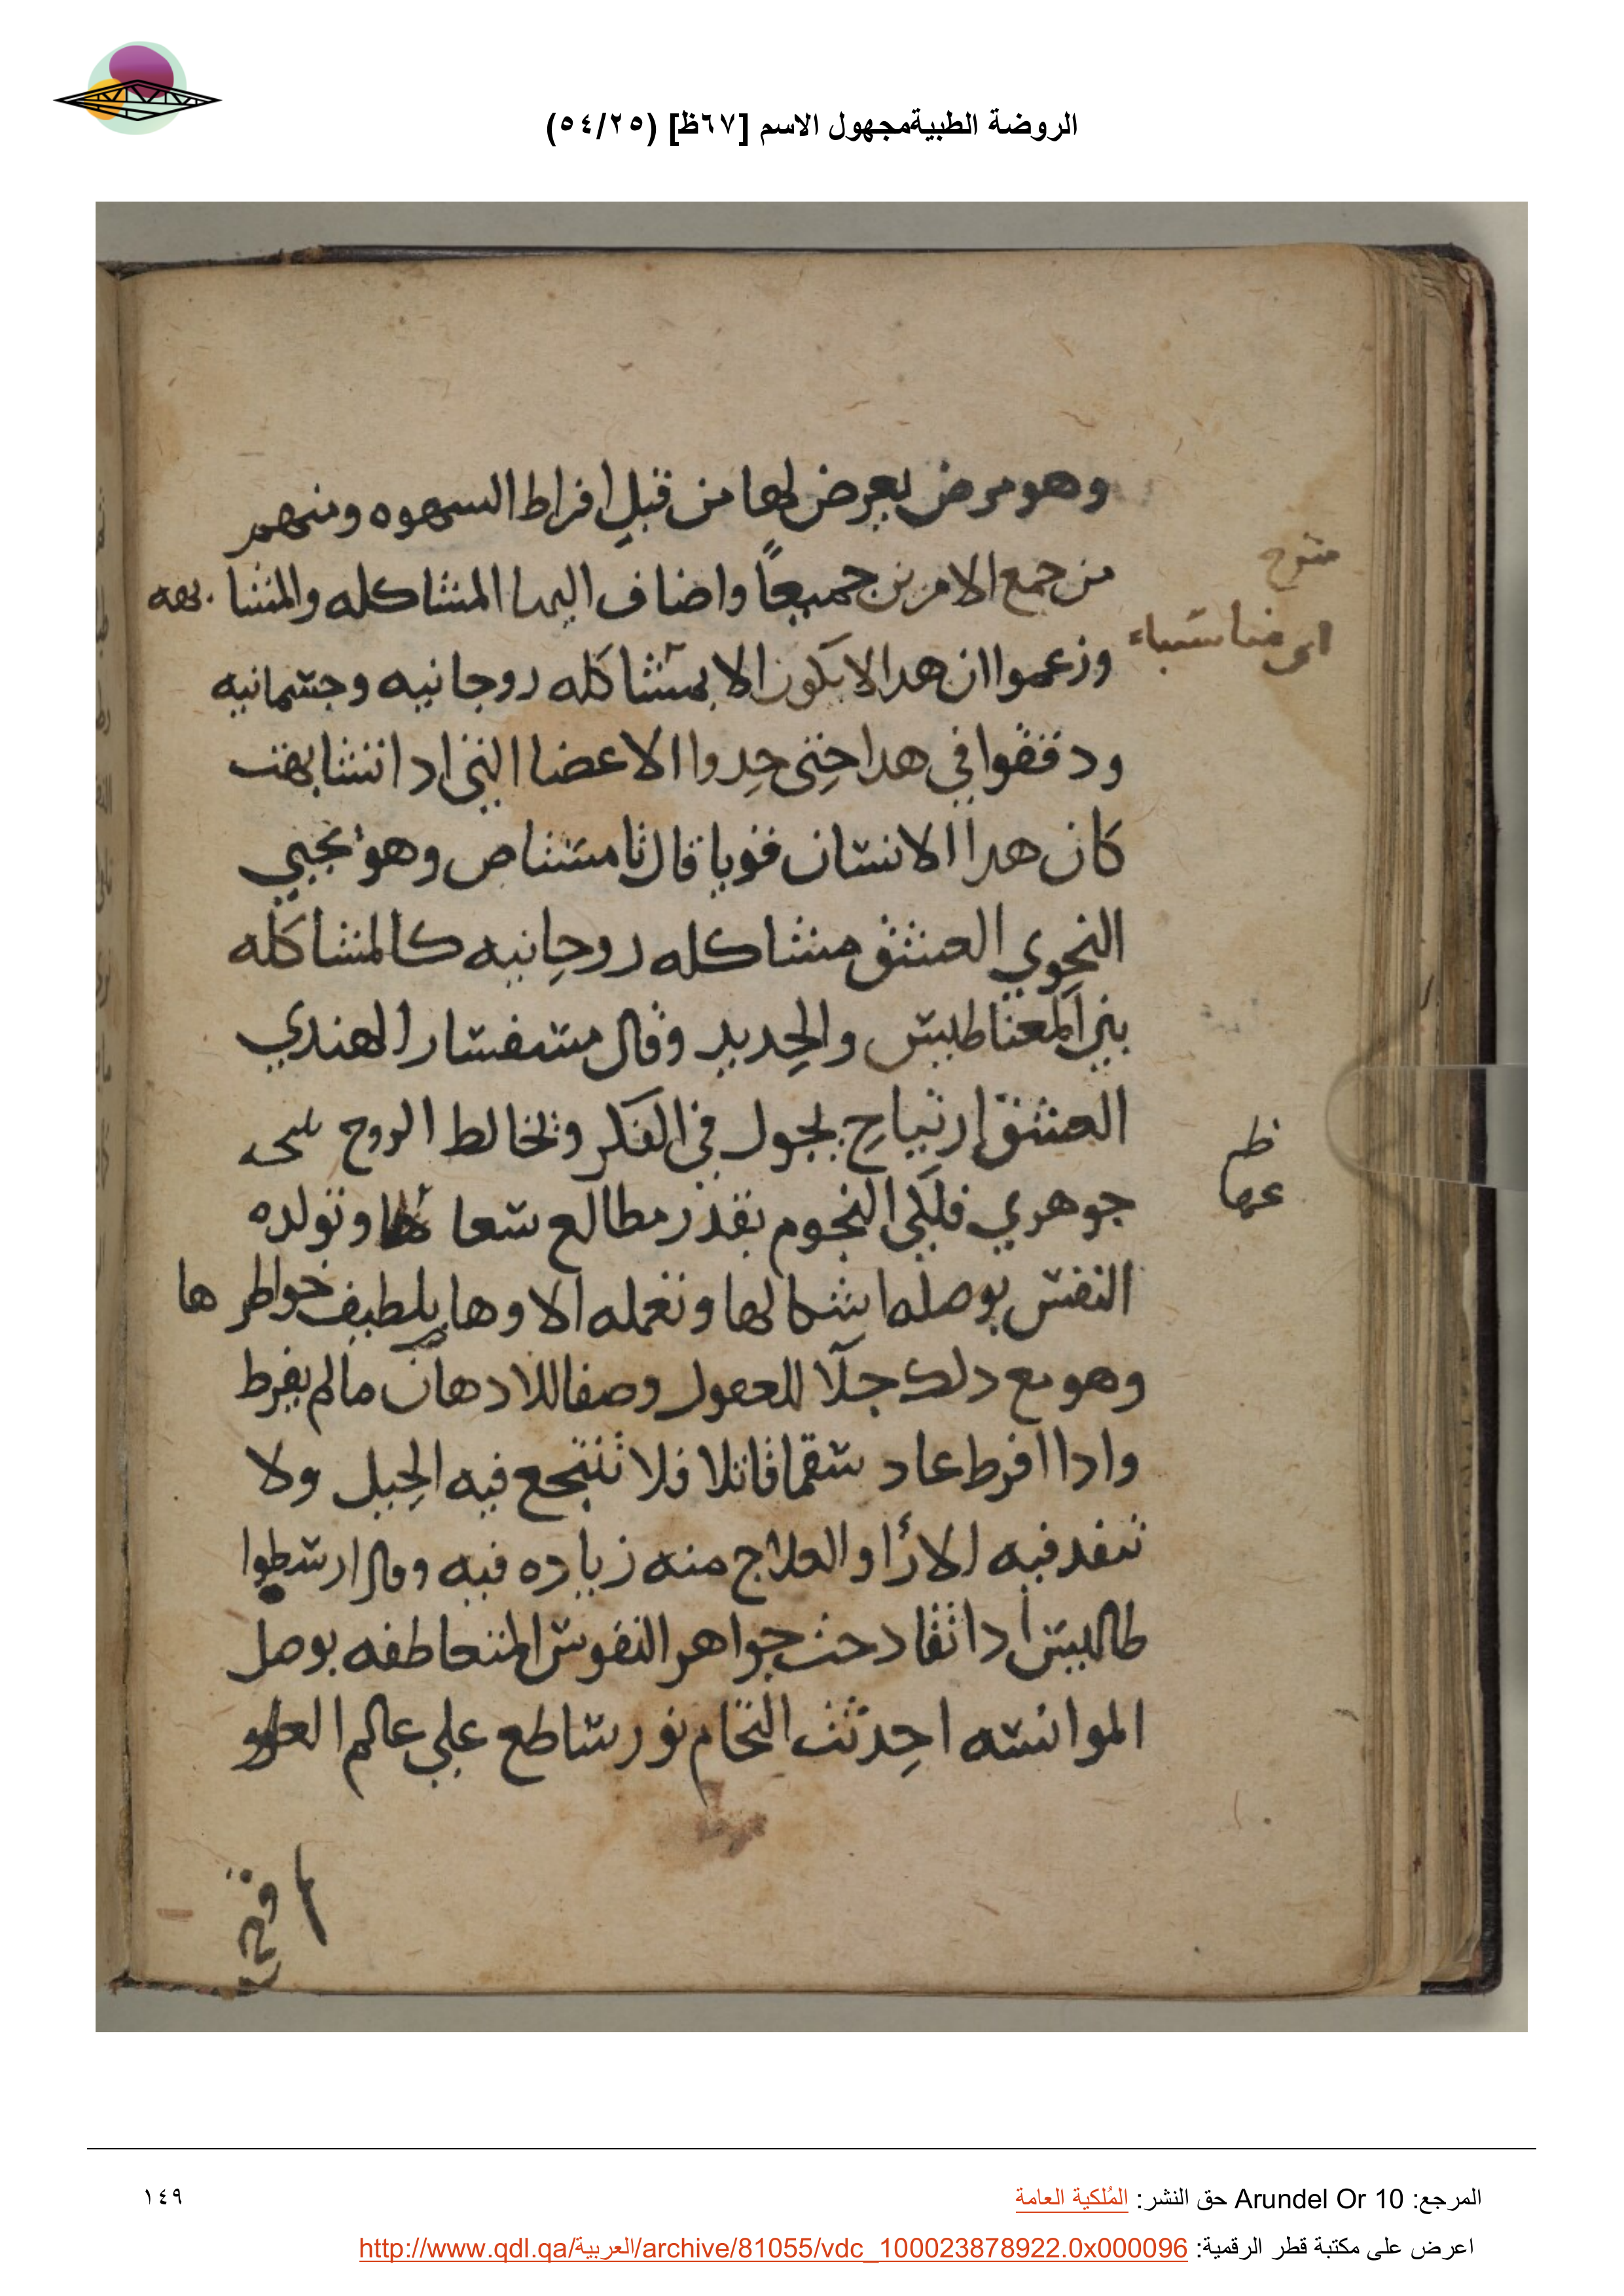 الروضة الطبيةمجهول الاسم [٦٧ظ] (٥٤/٢٥)
وهو مرض يعرض لها من قبل افراط السهوه ومنهم
من جمع الامرين جميعًا واضاف اليهما المشاكله والمشابهه
وزعموا ان هدا لا يكون الا بمشاكله روحانيه وجسمانيه
ودققوا في هدا حتى حدوا الاعضا التي ادا تشابهت
كان هدا الانسان قويا قال ثامسناص وهو يحيي
النحوي العشق مشاكله روحانيه كالمشاكله
بين المعناطيس والحديد وقال مسفسار الهندي
العشق إرتياح يجول في الفكر وتخالط الروح
جوهري فلكي النجوم بقدر مطالع شعا وتولده
النفس بوصله اشكالها وتعمله الاوها بلطيف خواطرها
وهو مع دلك جلآ للعقول وصفا للادهان ما لم يفرط
وادا افرط عاد سقما قاتلا فلا تنتجع فيه الحيل ولا
تنفد فيه الارأ والعلاج منه زياده فيه وقال ارسطوا
طاليس أدا تقادحت جواهر النفوس المتعاطفه بوصل
الموانسه احدثت التحام نور ساطع علي عالم
المرجع: Arundel Or 10 حق النشر: المُلكية العامة
١٤٩
اعرض على مكتبة قطر الرقمية: http://www.qdl.qa/العربية/archive/81055/vdc_100023878922.0x000096